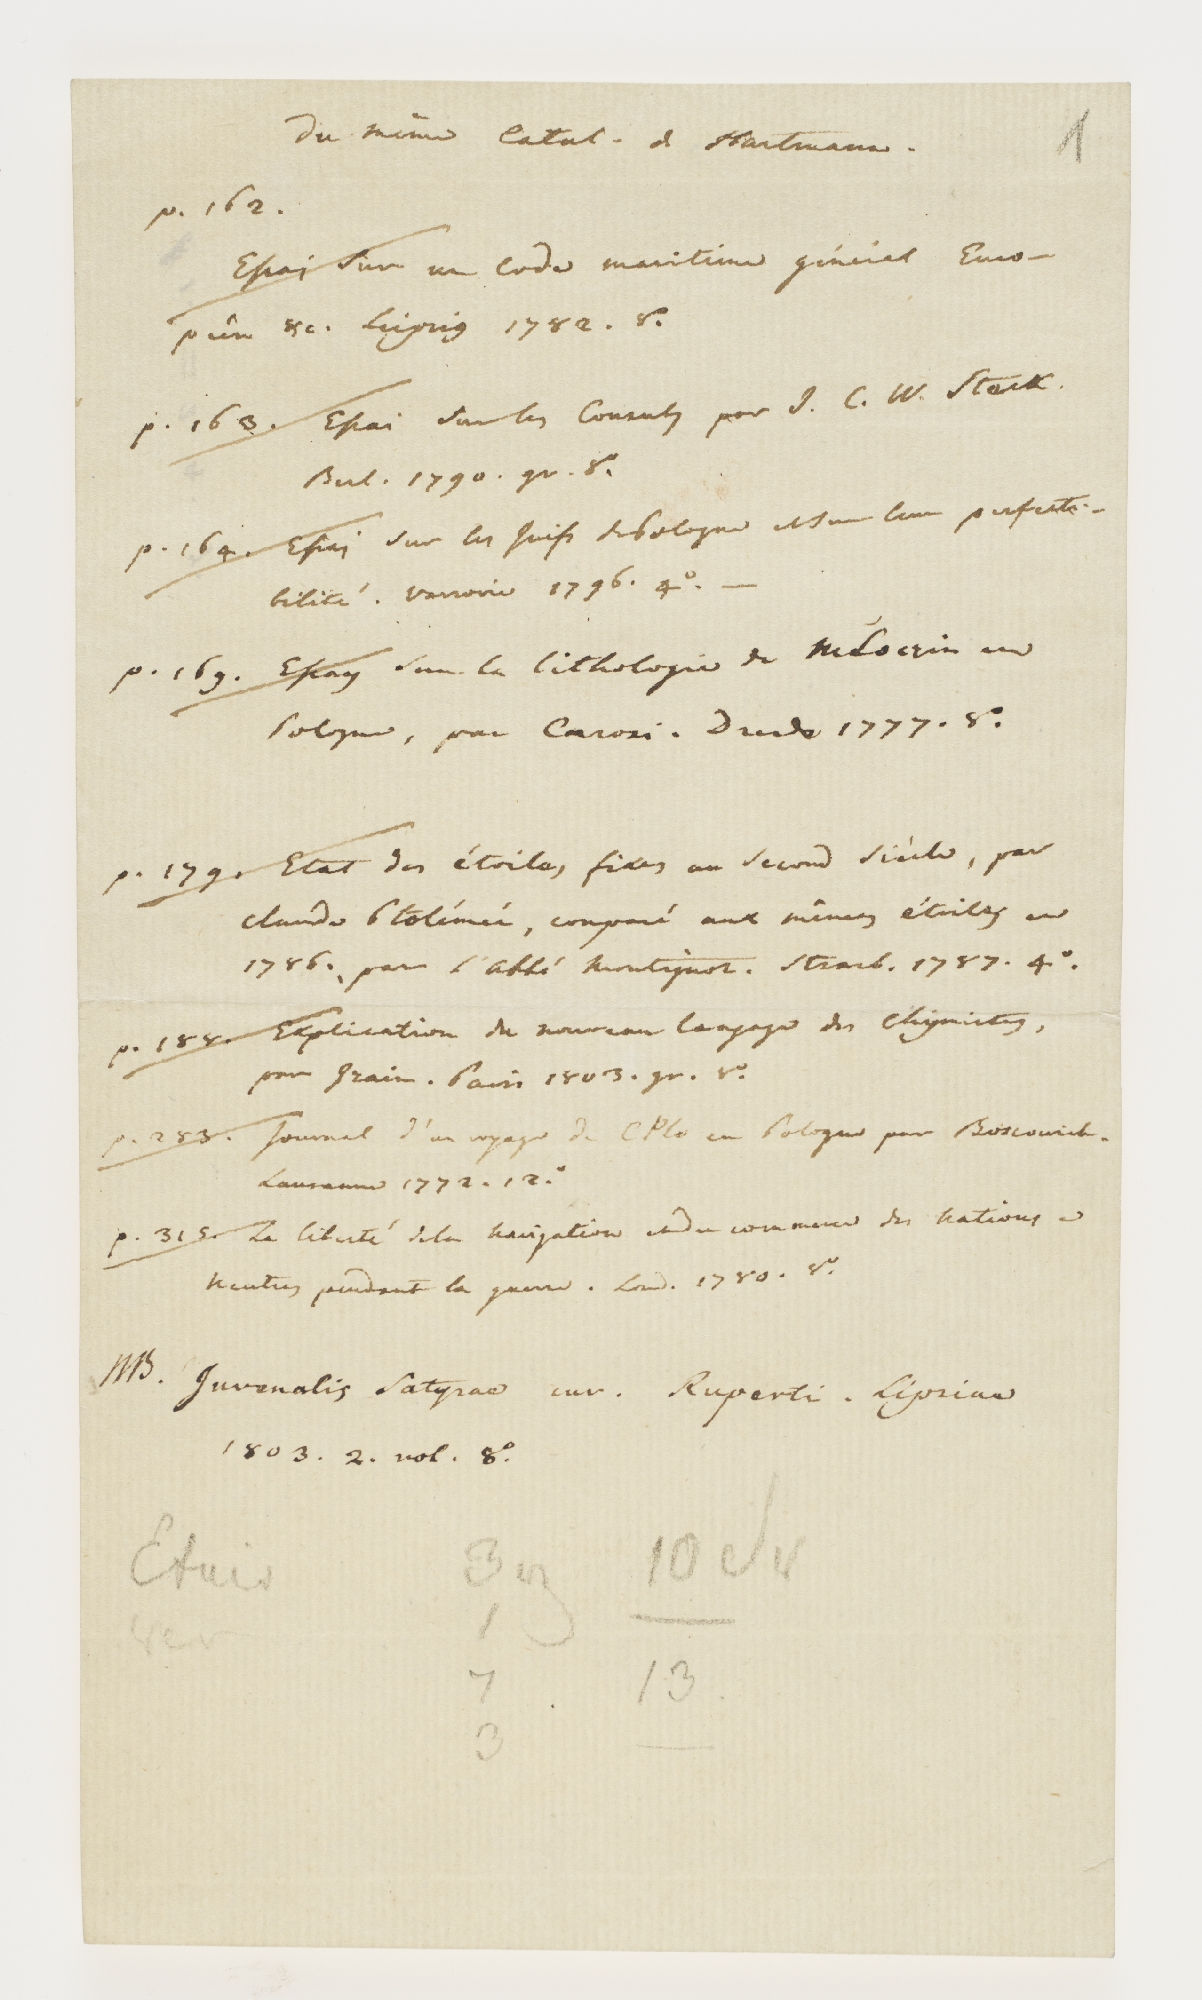 Du même Catal. d Hartmann.
1
p. 162.
Essai sur un Code maritime général Euro-
péen &c. Leipzig 1782. 8°.
p. 163. Essai sur les Consuls par J. C. W. Steck.
Berl. 1790. gr. 8°.
p. 164. Essai sur les Juifs de Pologne et sur leur perfecti-
bilité. Varsovie 1796. 4°. —
p. 169. Essay sur la lithologie de Mloczin en
Pologne, par Carosi. Dresde 1777. 8°.
p. 179. Etat des étoiles fixes au second siècle, par
Claude Ptolémée, comparé aux mêmes étoiles en
1786., par l'Abbé Montignot. Strasb. 1787. 4°.
p. 188. Explication du nouveau langage des Chymistes,
par Izain. Paris 1803. gr. 8°.
p. 283. Journal d'un voyage de CPle en Pologne par Boscowich.
Lausanne 1772. 12°.
p. 315. La liberté de la Navigation et du commerce des Nations
Neutres pendant la guerre. Lond. 1780. 8°.
NB. Juvenalis Satyrae cur. Ruperti. Lipsiae
1803. 2. vol. 8°.
3 10
1
7 13
3